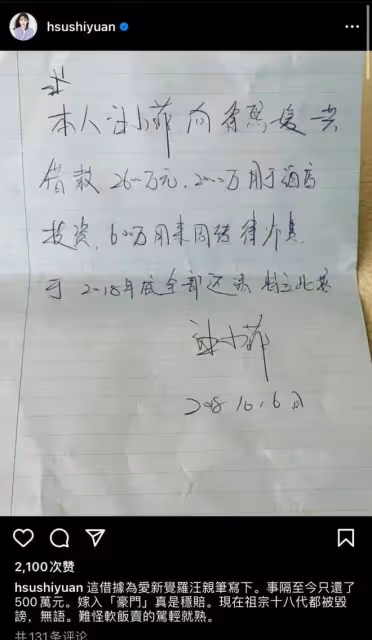 hsushiyuan
本人汪小菲向徐熙媛共
借款2600万元,2000万用于酒店
投资,600万用来周转
于2018年底全部还清 特立此据
汪小菲
2,100次赞
hsushiyuan 這借據為愛新覺羅汪親筆寫下。事隔至今只還了
500萬元。嫁入「豪門」真是穩賠。現在祖宗十八代都被毀
謗,無語。難怪軟飯賣的駕輕就熟。
共131条评论